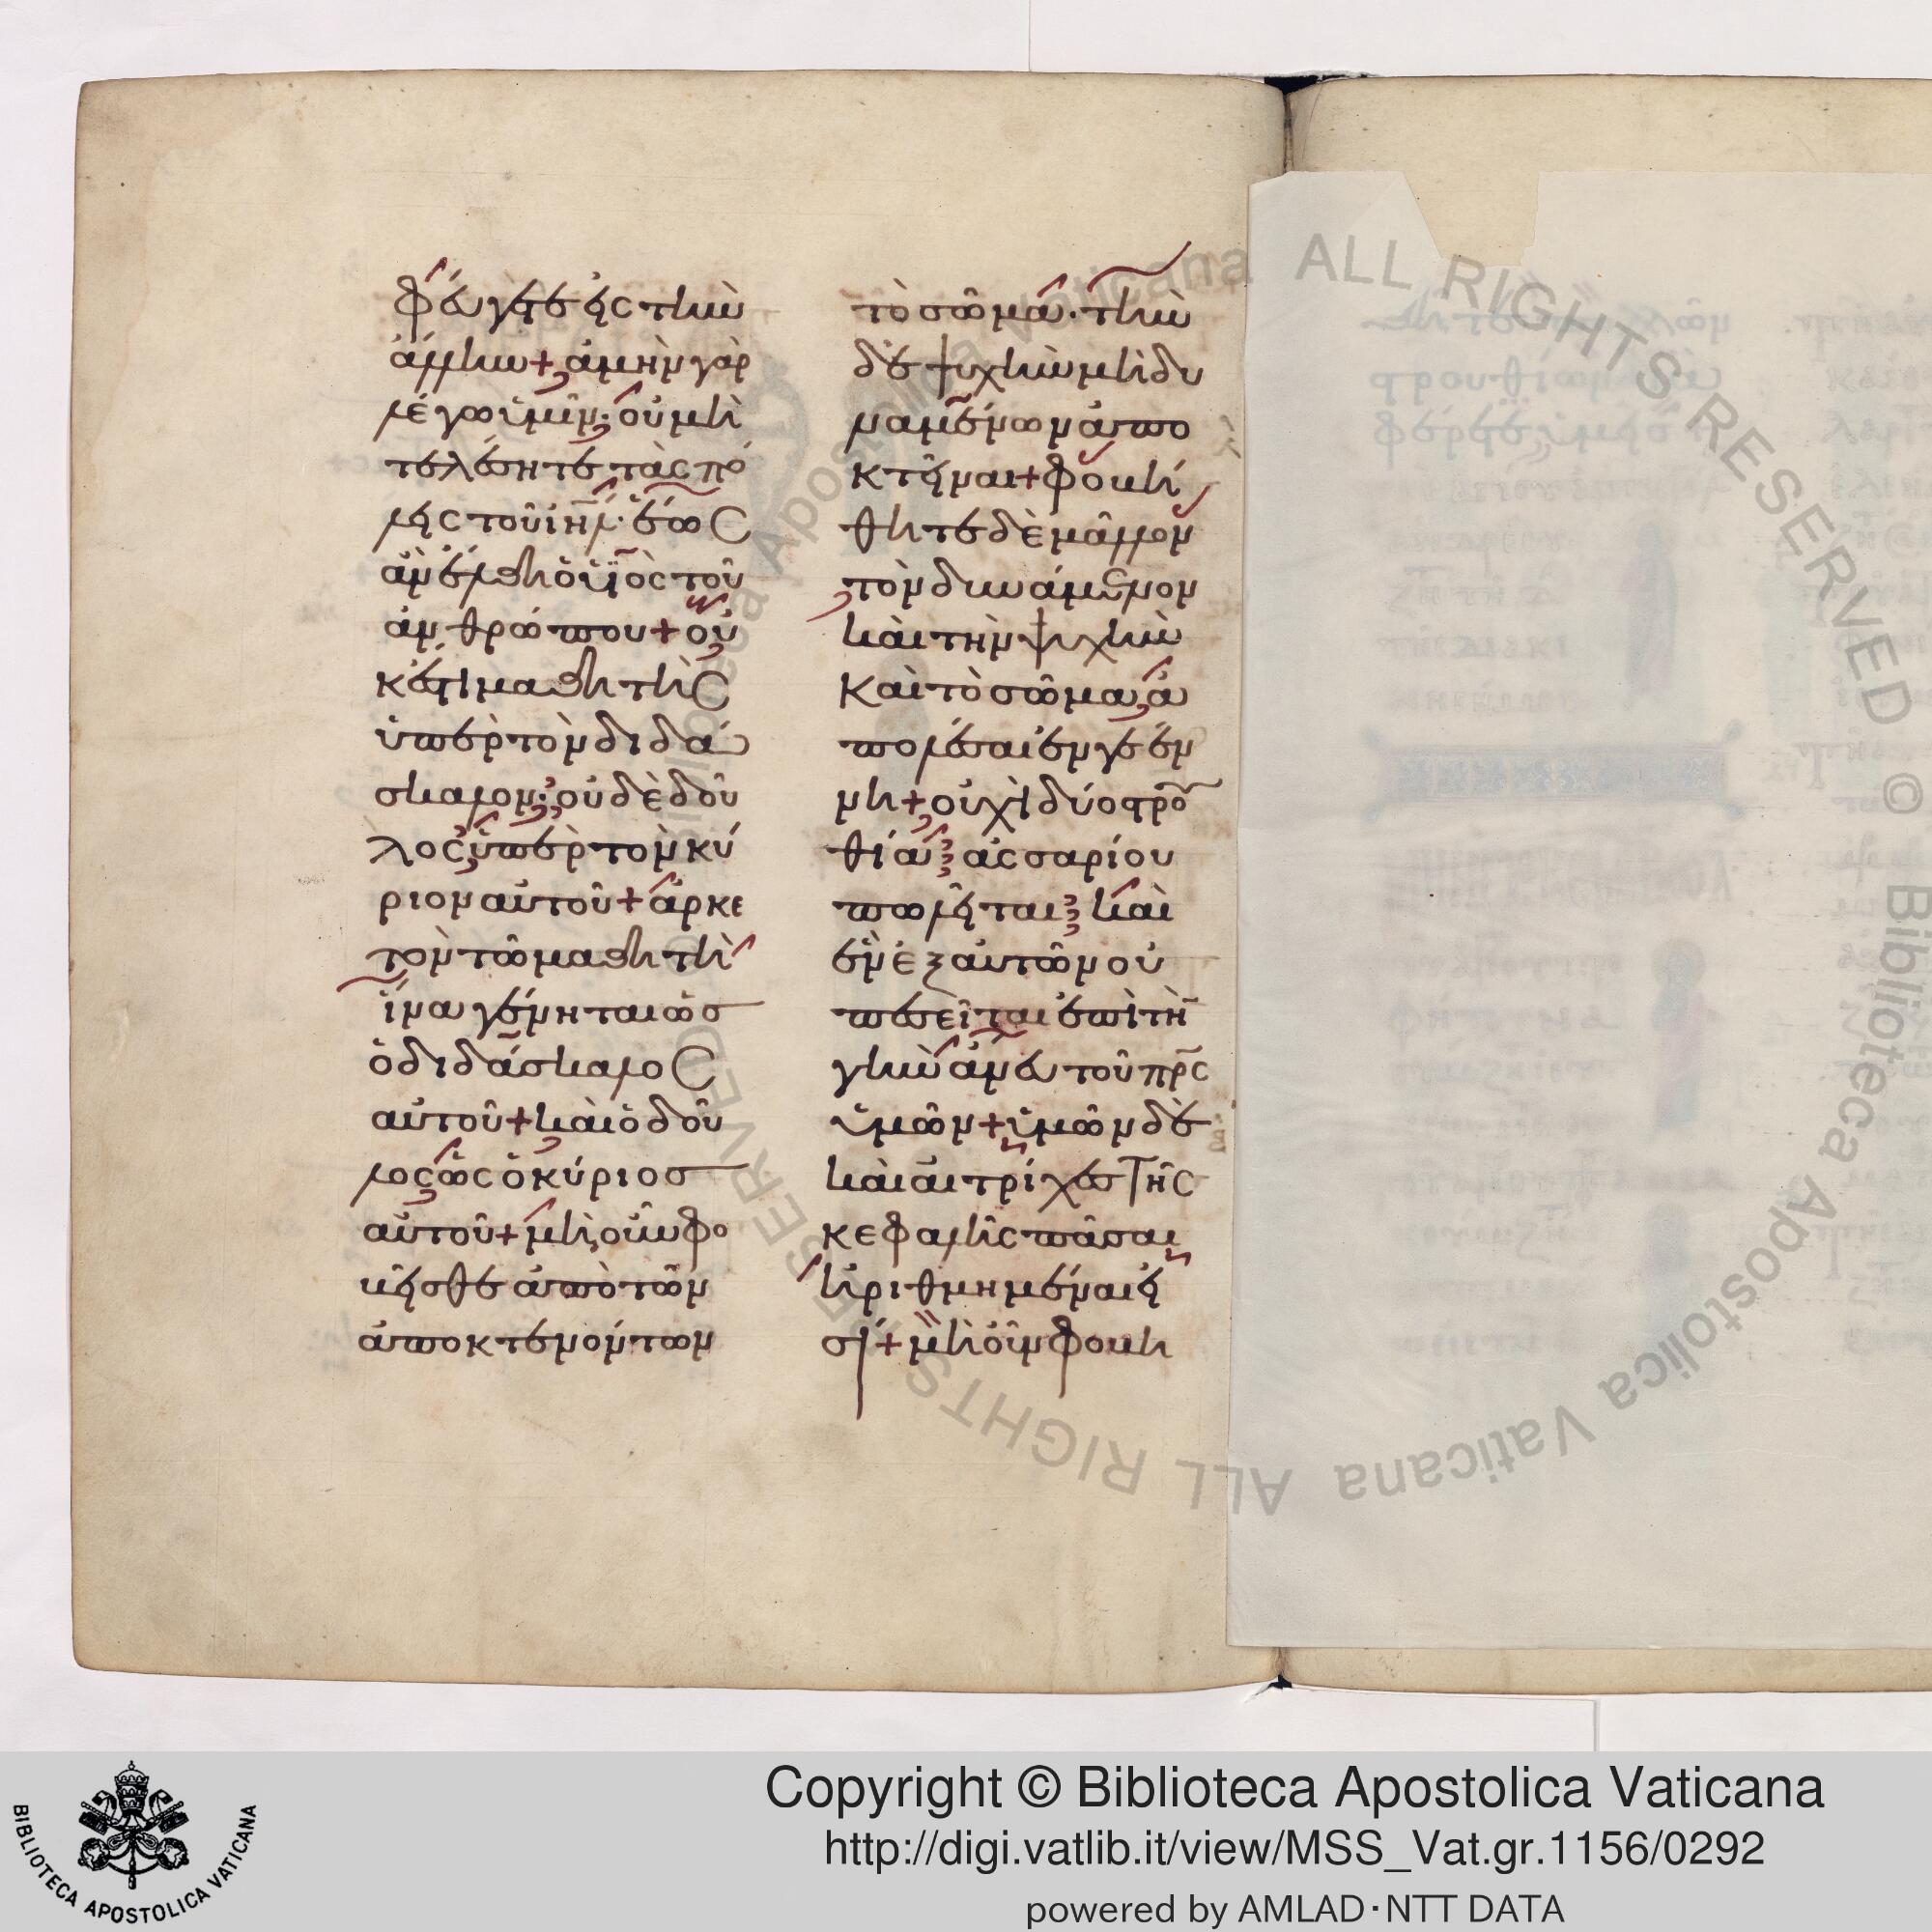 φεύγετε εἰς τὴν
ἄλλην + ἀμὴν γὰρ
λέγω ὑμῖν· οὐ μὴ
τελέσητε τὰς πό
λεις τοῦ ἰηλ· ἕως
ἂν ἔλθη ὁ υἱὸς τοῦ
ἀνθρώπου + οὐ
κ ἔστι μαθητὴς
ὑπὲρ τὸν διδά
σκαλον· οὐδὲ δοῦ
λος ὑπὲρ τὸν κύ
ριον αὐτοῦ + ἀρκε
τὸν τῶ μαθητῆ
ἵνα γένηται ὡσ
ὁ διδάσκαλος
αὐτοῦ + καὶ ὁ δοῦ
λος ὡς ὁ κύριοσ
αὐτοῦ + μὴ οὖν φο
βεῖσθε ἀπὸ τῶν
ἀποκτενόντων
τὸ σῶμα· τὴν
δὲ ψυχὴν μὴ δυ
ναμένων ἀπο
κτεῖναι + φοβή
θητε δὲ μᾶλλον
τὸν δυνάμενον
καὶ τὴν ψυχὴν
καὶ τὸ σῶμα, ἀ
πολέσαι ἐν γεέν
νη + οὐχὶ δύο στρου
θία ἀσσαρίου
πωλεῖται καὶ
ἓν ἐξ αὐτῶν οὐ
πεσεῖται ἐπὶ τὴν
γῆν ἄνευ τοῦ πρς
ὑμῶν + ὑμῶν δὲ
καὶ αἱ τρίχες τῆς
κεφαλῆς πᾶσαι
ἠριθμημέναι εἰ
σί + μὴ οὖν φοβη
ALL RIGHTS RESERVED © Biblioteca Apostolica Vaticana
Copyright © Biblioteca Apostolica Vaticana
http://digi.vatlib.it/view/MSS_Vat.gr.1156/0292
powered by AMLAD·NTT DATA
BIBLIOTECA APOSTOLICA VATICANA